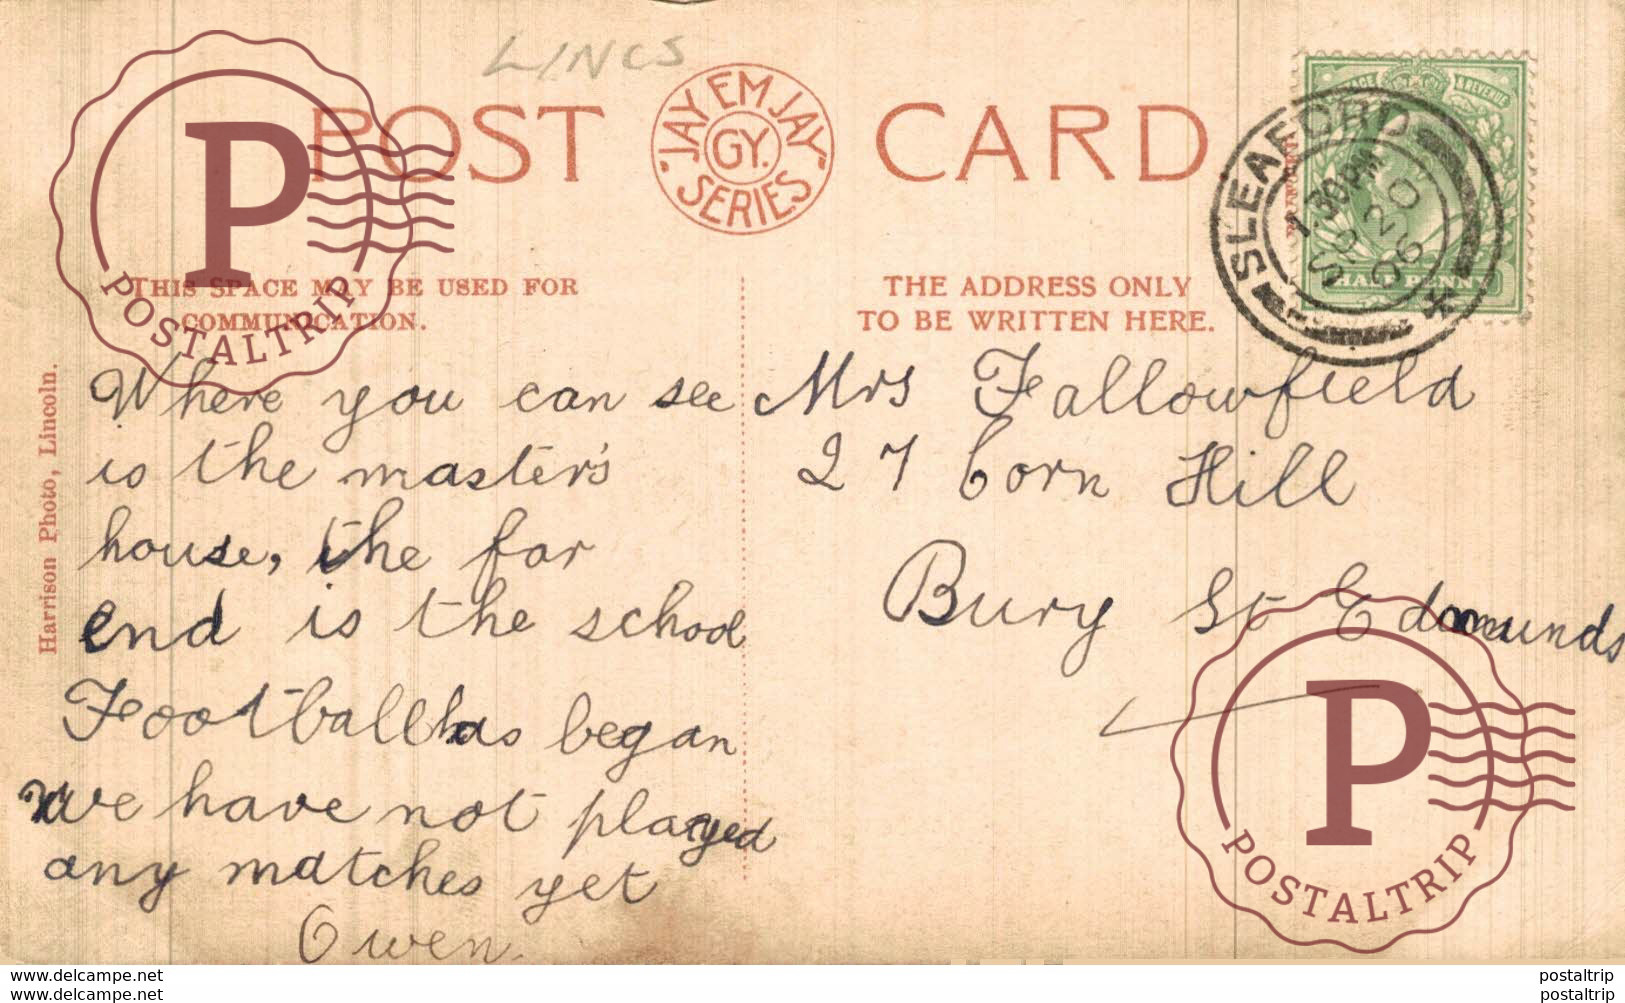 LINCS
POST CARD
JAY EM JAY
GY.
SERIES
THIS SPACE MAY BE USED FOR
COMMUNICATION.
THE ADDRESS ONLY
TO BE WRITTEN HERE.
POSTAGE & REVENUE
HALF PENNY
SLEAFORD
1.30 PM
SP 20
06
Harrison Photo, Lincoln.
Where you can see
is the master's
house, the far
end is the school
Football has began
we have not played
any matches yet
Owen.
Mrs Fallowfield
27 Corn Hill
Bury St Edmunds
P
POSTALTRIP
P
POSTALTRIP
www.delcampe.net
www.delcampe.net
postaltrip
postaltrip